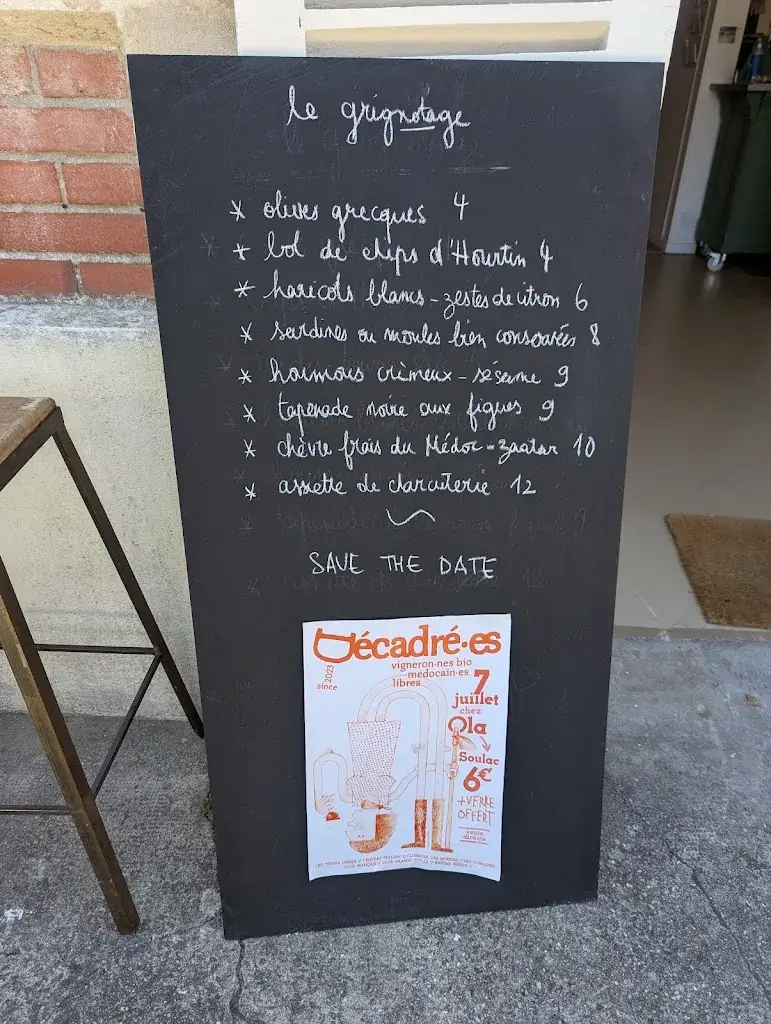 le grignotage
* olives grecques 4
* bol de chips d'Hourtin 4
* haricots blancs - zestes de citron 6
* sardines ou moules bien conservées 8
* houmous crémeux - sésame 9
* tapenade noire aux figues 9
* chèvre frais du Médoc - zaatar 10
* assiette de charcuterie 12
SAVE THE DATE
Décadré·es
since 2023
vigneron·nes bio
médocain·es
libres
7
juillet
chez
Ola
Soulac
6€
+ VERRE
OFFERT
vente
directe